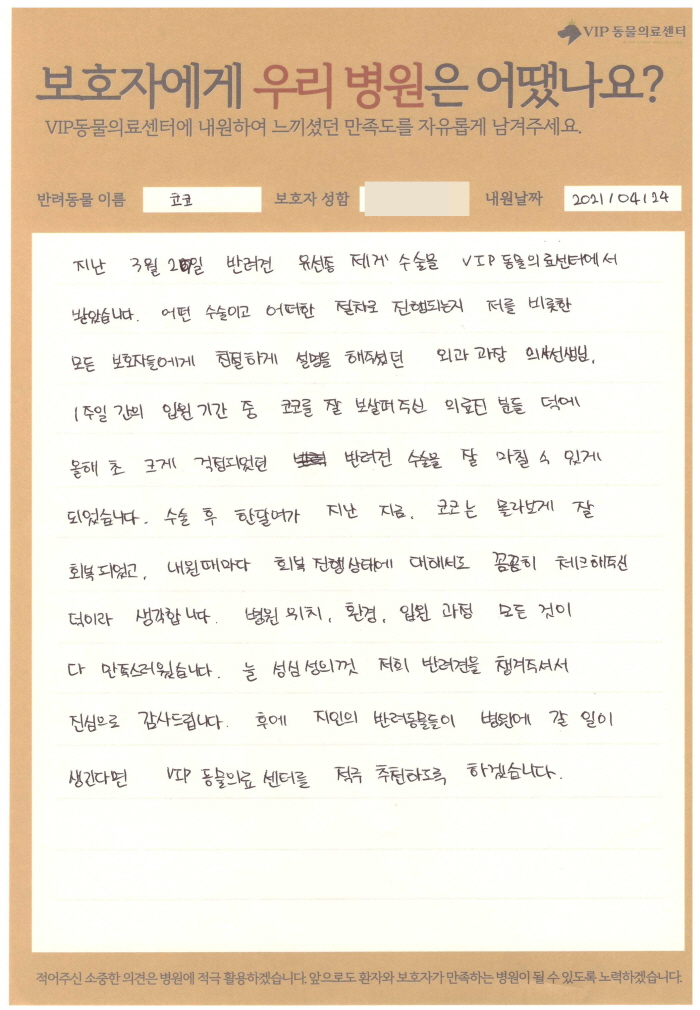 VIP 동물의료센터
보호자에게 우리 병원은 어땠나요?
VIP동물의료센터에 내원하여 느끼셨던 만족도를 자유롭게 남겨주세요.
반려동물 이름 코코 보호자 성함 내원날짜 2021/04/24
지난 3월 일 반려견 유선종 제거 수술을 VIP 동물의료센터에서
받았습니다. 어떤 수술이고 어떠한 절차로 진행되는지 저를 비롯한
모든 보호자들에게 친절하게 설명을 해주셨던 외과 과장 의사선생님,
1주일 간의 입원 기간 중 코코를 잘 보살펴주신 의료진 분들 덕에
올해 초 크게 걱정되었던 반려견 수술을 잘 마칠 수 있게
되었습니다. 수술 후 한달여가 지난 지금, 코코는 몰라보게 잘
회복되었고, 내원때마다 회복 진행상태에 대해서도 꼼꼼히 체크해주신
덕이라 생각합니다. 병원 위치, 환경, 입원 과정 모든 것이
다 만족스러웠습니다. 늘 성심성의껏 저희 반려견을 챙겨주셔서
진심으로 감사드립니다. 후에 지인의 반려동물들이 병원에 갈 일이
생긴다면 VIP 동물의료 센터를 적극 추천하도록 하겠습니다.
적어주신 소중한 의견은 병원에 적극 활용하겠습니다. 앞으로도 환자와 보호자가 만족하는 병원이 될 수 있도록 노력하겠습니다.